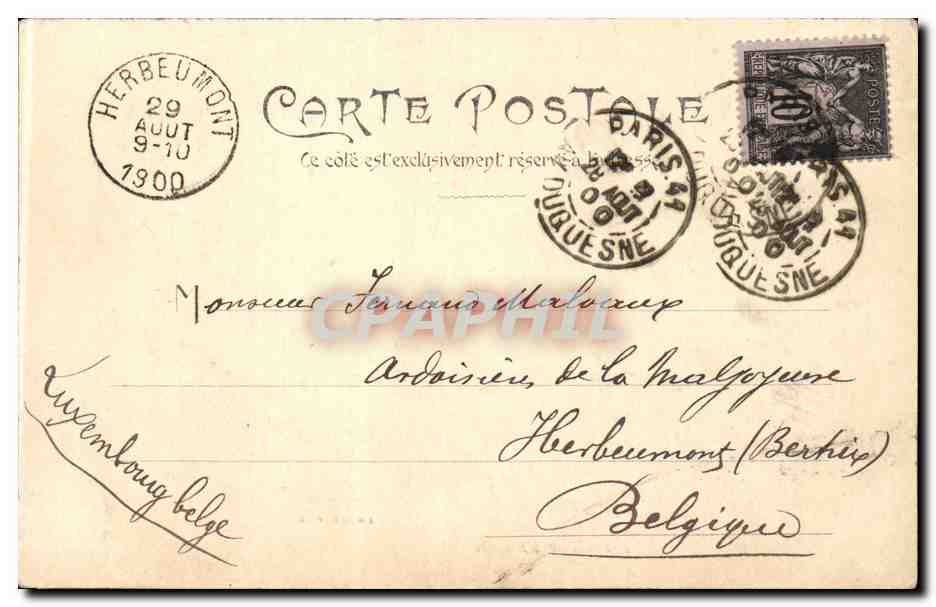 HERBEUMONT
29
AOUT
9-10
1900
CARTE POSTALE
Ce côté est exclusivement réservé à l'adresse
POSTE
10
PARIS 41
28
AOUT
00
DUQUESNE
PARIS 41
AOUT
00
DUQUESNE
Monsieur Fernand Malvaux
CPAPHIL
Ardoisières de la Maljoyeuse
Herbeumont (Bertrix)
Belgique
Luxembourg belge